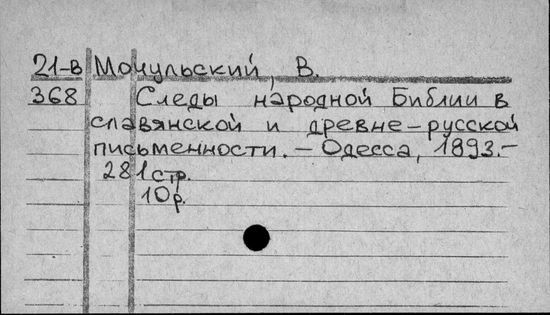 21-в Мочульский, В.
368 Следы народной Библии в
славянской и древне-русской
письменности. - Одесса, 1893.-
281 стр.
10р.